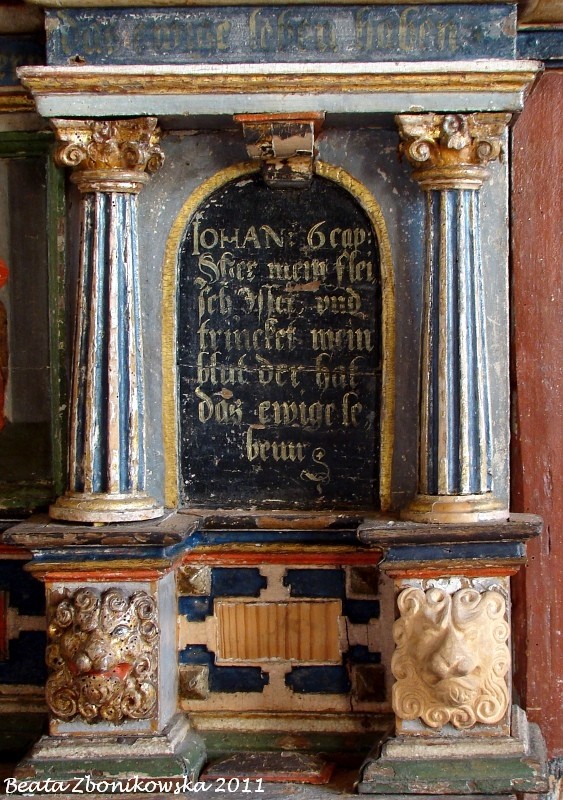 das ewige leben haben
IOHAN: 6 cap:
Wer mein flei
sch Isset, vnd
trincket mein
blut der hat
das ewige le,
benn
Beata Zbonikowska 2011